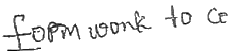 form work to ce